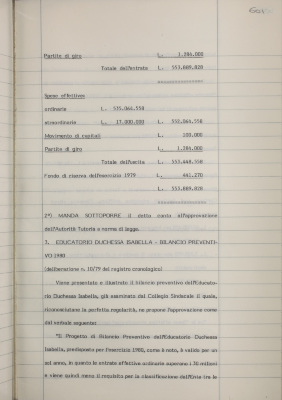 Partite di giro L. 1.284.000
Totale dell'entrata L. 553.889.828
Spese effettive:
ordinarie L. 535.064.558
straordinarie L. 17.000.000 L. 552.064.558
Movimento di capitali L. 100.000
Partite di giro L. 1.284.000
Totale dell'uscita L. 553.448.558
Fondo di riserva dell'esercizio 1979 L. 441.270
L. 553.889.828
2°) MANDA SOTTOPORRE il detto conto all'approvazione
dell'Autorità Tutoria a norma di legge.
3. EDUCATORIO DUCHESSA ISABELLA - BILANCIO PREVENTI-
VO 1980
(deliberazione n. 10/79 del registro cronologico)
Viene presentato e illustrato il bilancio preventivo dell'Educato-
rio Duchessa Isabella, già esaminato dal Collegio Sindacale il quale,
riconosciutane la perfetta regolarità, ne propone l'approvazione come
dal verbale seguente:
"Il Progetto di Bilancio Preventivo dell'Educatorio Duchessa
Isabella, predisposto per l'esercizio 1980, come è noto, è valido per un
sol anno, in quanto le entrate effettive ordinarie superano i 30 milioni
e viene quindi meno il requisito per la classificazione dell'Ente tra le